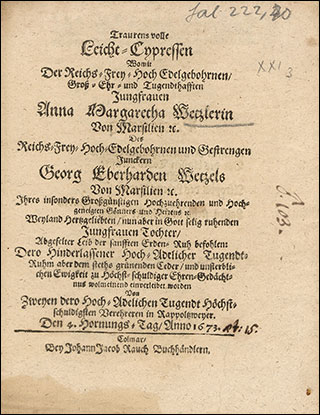 Jal 222, 20
Traurens volle
Leiche-Cypressen
Womit
XXI
3
Der Reichs-Frey-Hoch Edelgebohrnen/
Groß-Ehr-und Tugendhafften
Jungfrauen
Anna Margaretha Wetzlerin
Von Marsilien ꝛc.
Des
Reichs/Frey/Hoch-Edelgebohrnen und Gestrengen
Junckern
Georg Eberharden Wetzels
Von Marsilien ꝛc.
Ihres insonders Großgünstigen Hochzuehrenden und Hoch-
geneigten Gönners und Herrens ꝛc.
Weyland Hertzgeliebten/nun aber in Gott selig ruhenden
Jungfrauen Tochter/
Abgeseelter Leib der sanfften Erden-Ruh befohlen:
Dero Hinderlassener Hoch-Adlicher Tugendt-
Ruhm aber dem steths grünenden Ceder/ und unsterbli-
chen Ewigkeit zu Höchst-schuldiger Ehren-Gedächt-
nus wolmeinend einverleibet worden
Von
Zweyen dero Hoch-Adelichen Tugendt Höchst-
schuldigsten Verehreren in Rappoltzweyer.
Den 4. Hornungs-Tag/Anno 1673.
15.
Colmar/
Bey Johann Jacob Rauch Buchhändlern.